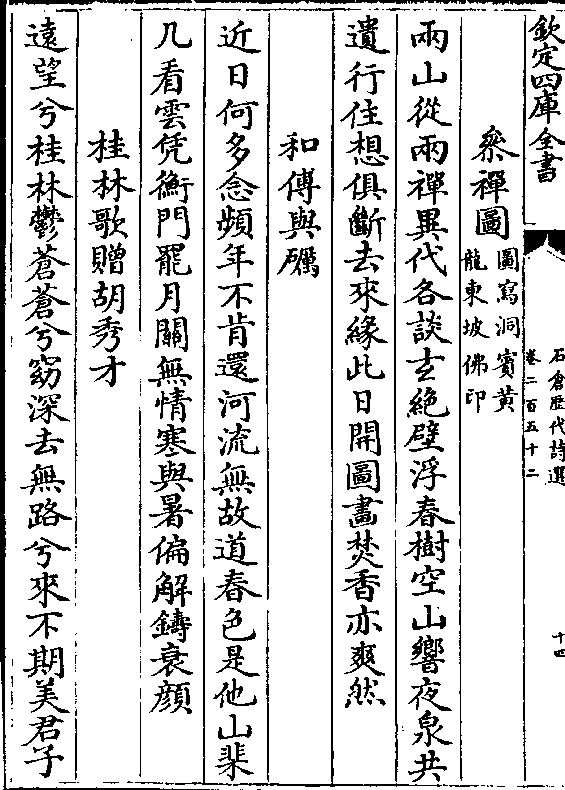 欽定四庫全書
石倉歷代詩選
卷二百五十二
十四
叅禪圖
圖寫洞賓黃
龍東坡佛印
兩山從兩禪異代各談玄絶壁浮春樹空山響夜泉共
遺行住想俱斷去來緣此日開圖畫焚香亦爽然
和傅與礪
近日何多念頻年不肯還河流無故道春色是他山棐
几看雲凭衡門罷月關無情寒與暑偏解鑄衰顔
桂林歌贈胡秀才
遠望兮桂林鬱蒼蒼兮窈深去無路兮來不期美君子